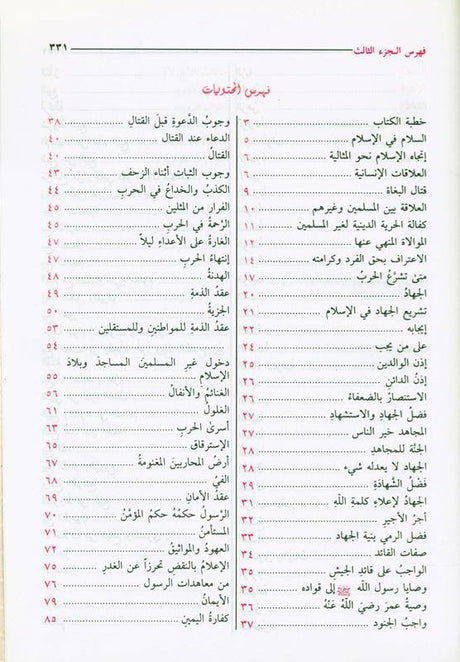 فهرس الجزء الثالث ٣٣١
فهرس المحتويات
خطبة الكتاب ٣
السلام في الإسلام ٥
إتجاه الإسلام نحو المثالية ٦
العلاقات الإنسانية ٦
قتال البغاة ٩
العلاقة بين المسلمين وغيرهم ١٠
كفالة الحرية الدينية لغير المسلمين ١١
الموالاة المنهي عنها ١٢
الاعتراف بحق الفرد وكرامته ١٤
متىٰ تشرَّعُ الحربُ ١٧
الجهادُ ٢٠
تشريع الجهاد في الإسلام ٢١
إيجابه ٢٢
على من يجب ٢٤
إذن الوالدين ٢٥
إذنُ الدائنِ ٢٦
الاستنصارُ بالضعفاءُ ٢٦
فضلُ الجهادِ والاستشهادِ ٢٧
المجاهد خير الناس ٢٧
الجنَّة للمجاهدِ ٢٨
الجهاد لا يعدله شيء ٢٨
فَضْلُ الشَّهادَةِ ٢٩
الجهادُ لإعلاءِ كلمةِ اللهِ ٣١
أجرُ الأجيرِ ٣٢
فضل الرمي بنية الجهاد ٣٣
صفات القائد ٣٤
الواجبُ على قائدِ الجيش ٣٥
وصايا رسول الله ﷺ إلى قواده ٣٥
وصيةُ عمرَ رضيَ اللهُ عَنْهُ ٣٦
واجبُ الجنود ٣٧
وجوبُ الدَّعوةِ قبلَ القتالِ ٣٨
الدعاء عند القتال ٤٠
القتالُ ٤٠
وجوب الثبات أثناء الزحف ٤٣
الكذبُ والخداعُ في الحربِ ٤٤
الفرار من المثلين ٤٥
الرَّحمةُ في الحربِ ٤٥
الغارةُ على الأعداءِ ليلاً ٤٧
إنتهاءُ الحربِ ٤٧
الهدنةُ ٤٨
عقدُ الذمةِ ٤٩
الجزيةُ ٥٠
عقدُ الذمةِ للمواطنينِ وللمستقلين ٥٣
٥٤
دخول غيرِ المسلمينَ المساجدَ وبلادَ
الإسلامِ ٥٥
الغنائمُ والأنفالُ ٥٦
الغلولُ ٦١
أسرىٰ الحربِ ٦٣
الإسترقاقُ ٦٥
أرضُ المحاربينَ المغنومةُ ٦٧
الفيُ ٦٨
عقدُ الأمانِ ٦٩
الرَّسولُ حكمُهُ حكمُ المؤمَّنُ ٧٠
المستأمنُ ٧١
العهودُ والمواثيقُ ٧٢
الإعلامُ بالنقضِ تحرزاً عن الغدرِ ٧٥
من معاهدات الرسول ٧٦
الأيمانُ ٧٩
كفارةُ اليمينِ ٨٥